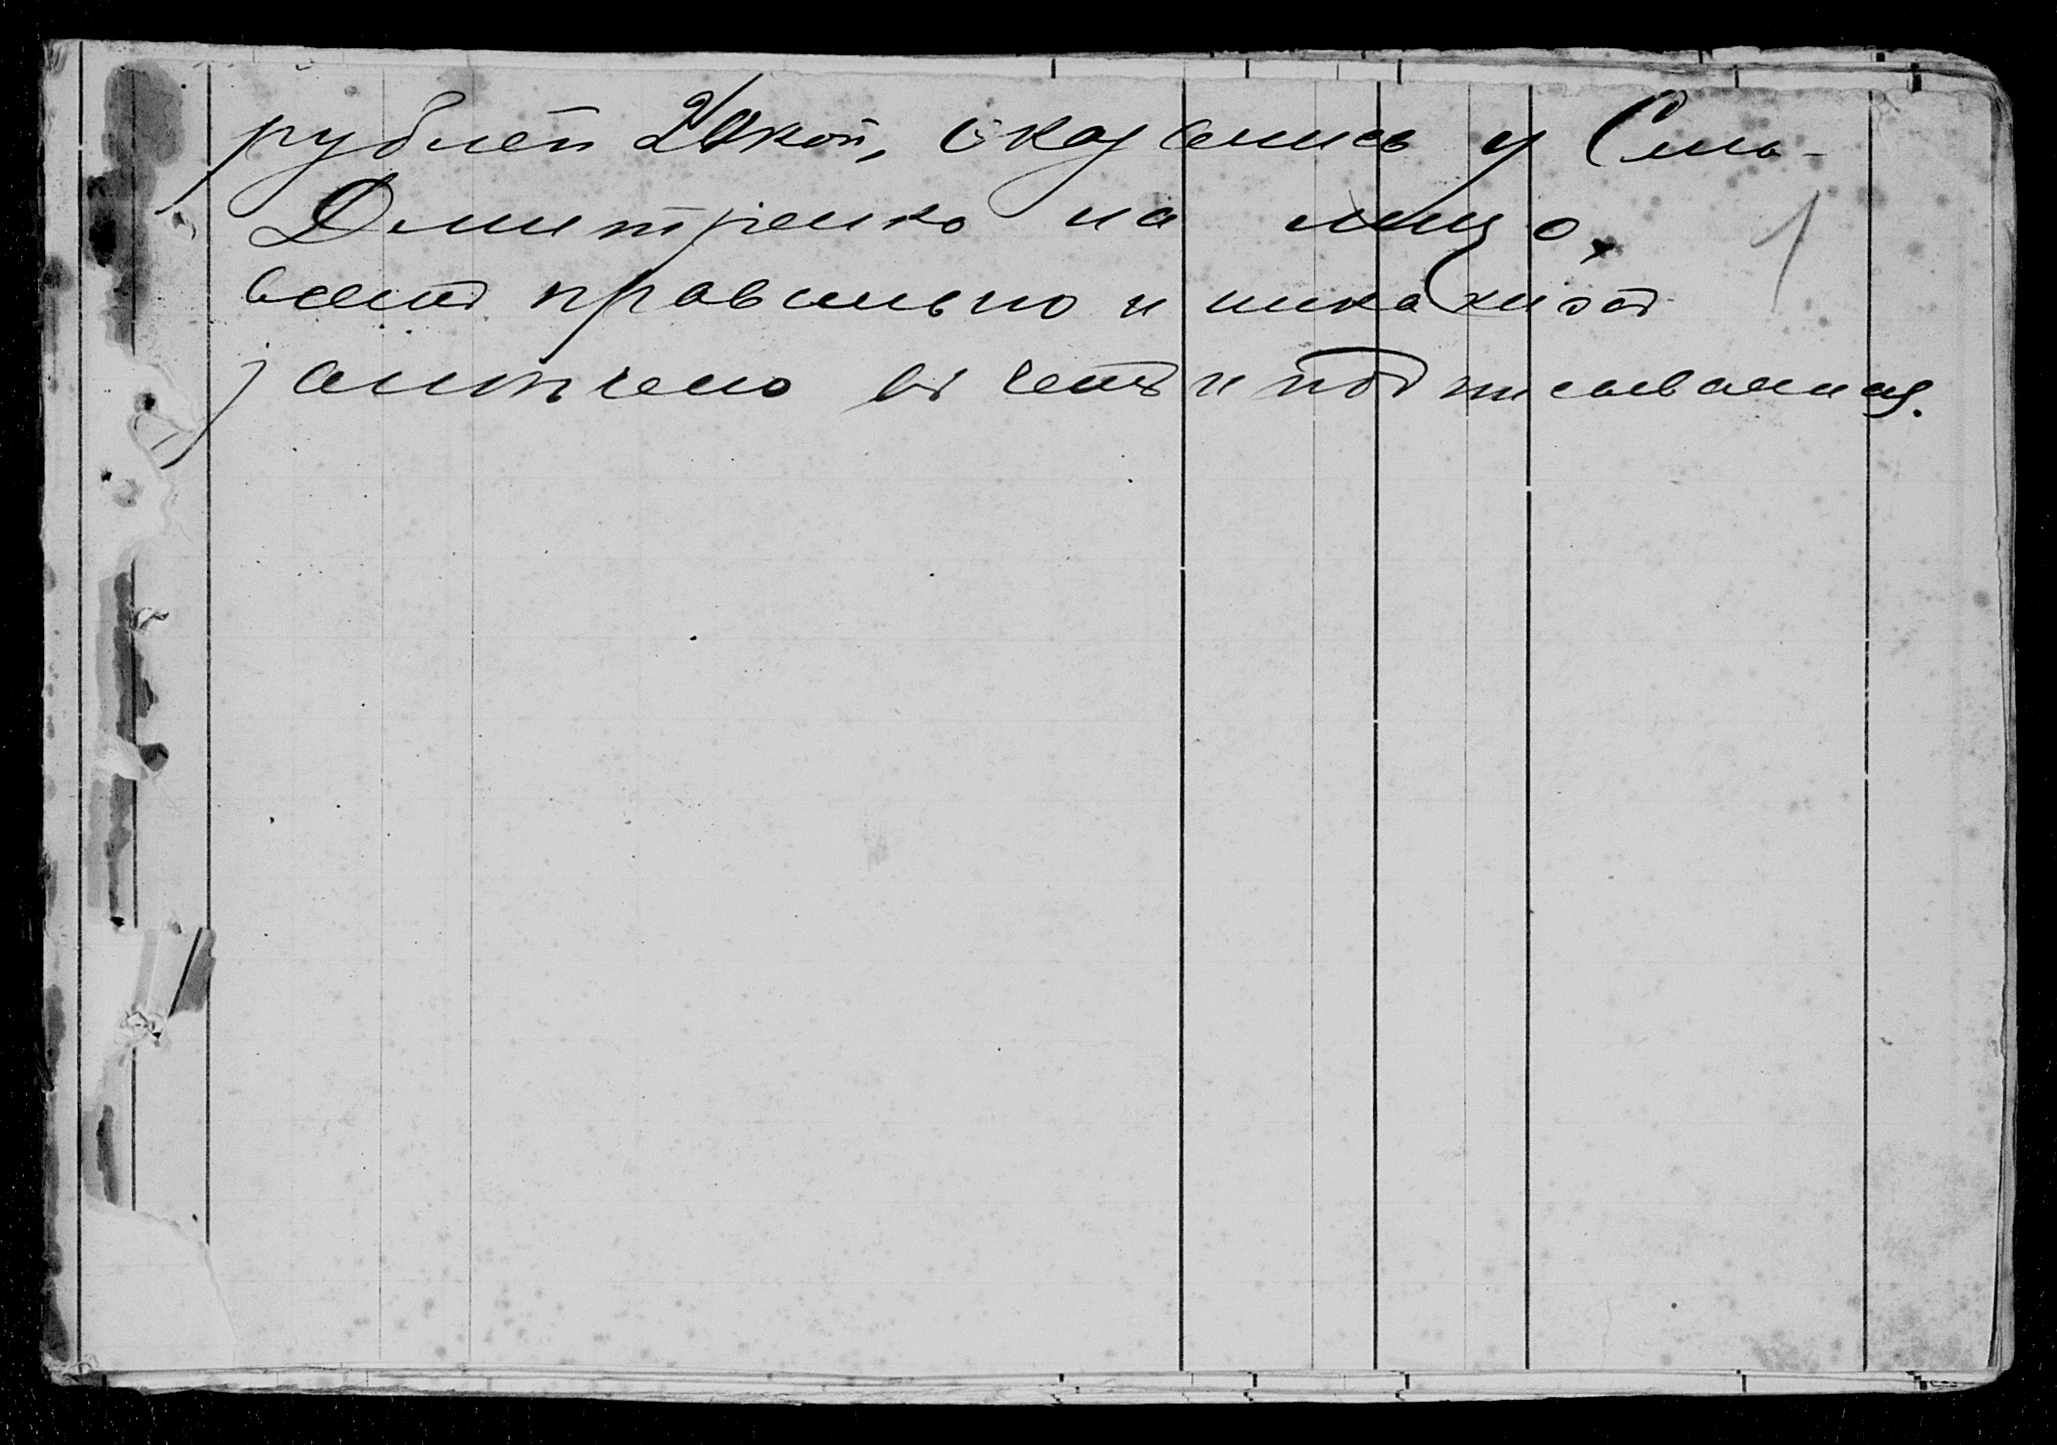 рублей 20 коп, оказались у Сиь-
Дмитренко на лицо,
правильно и никакихъ
замечено въ чемъ и подписываемся.
1